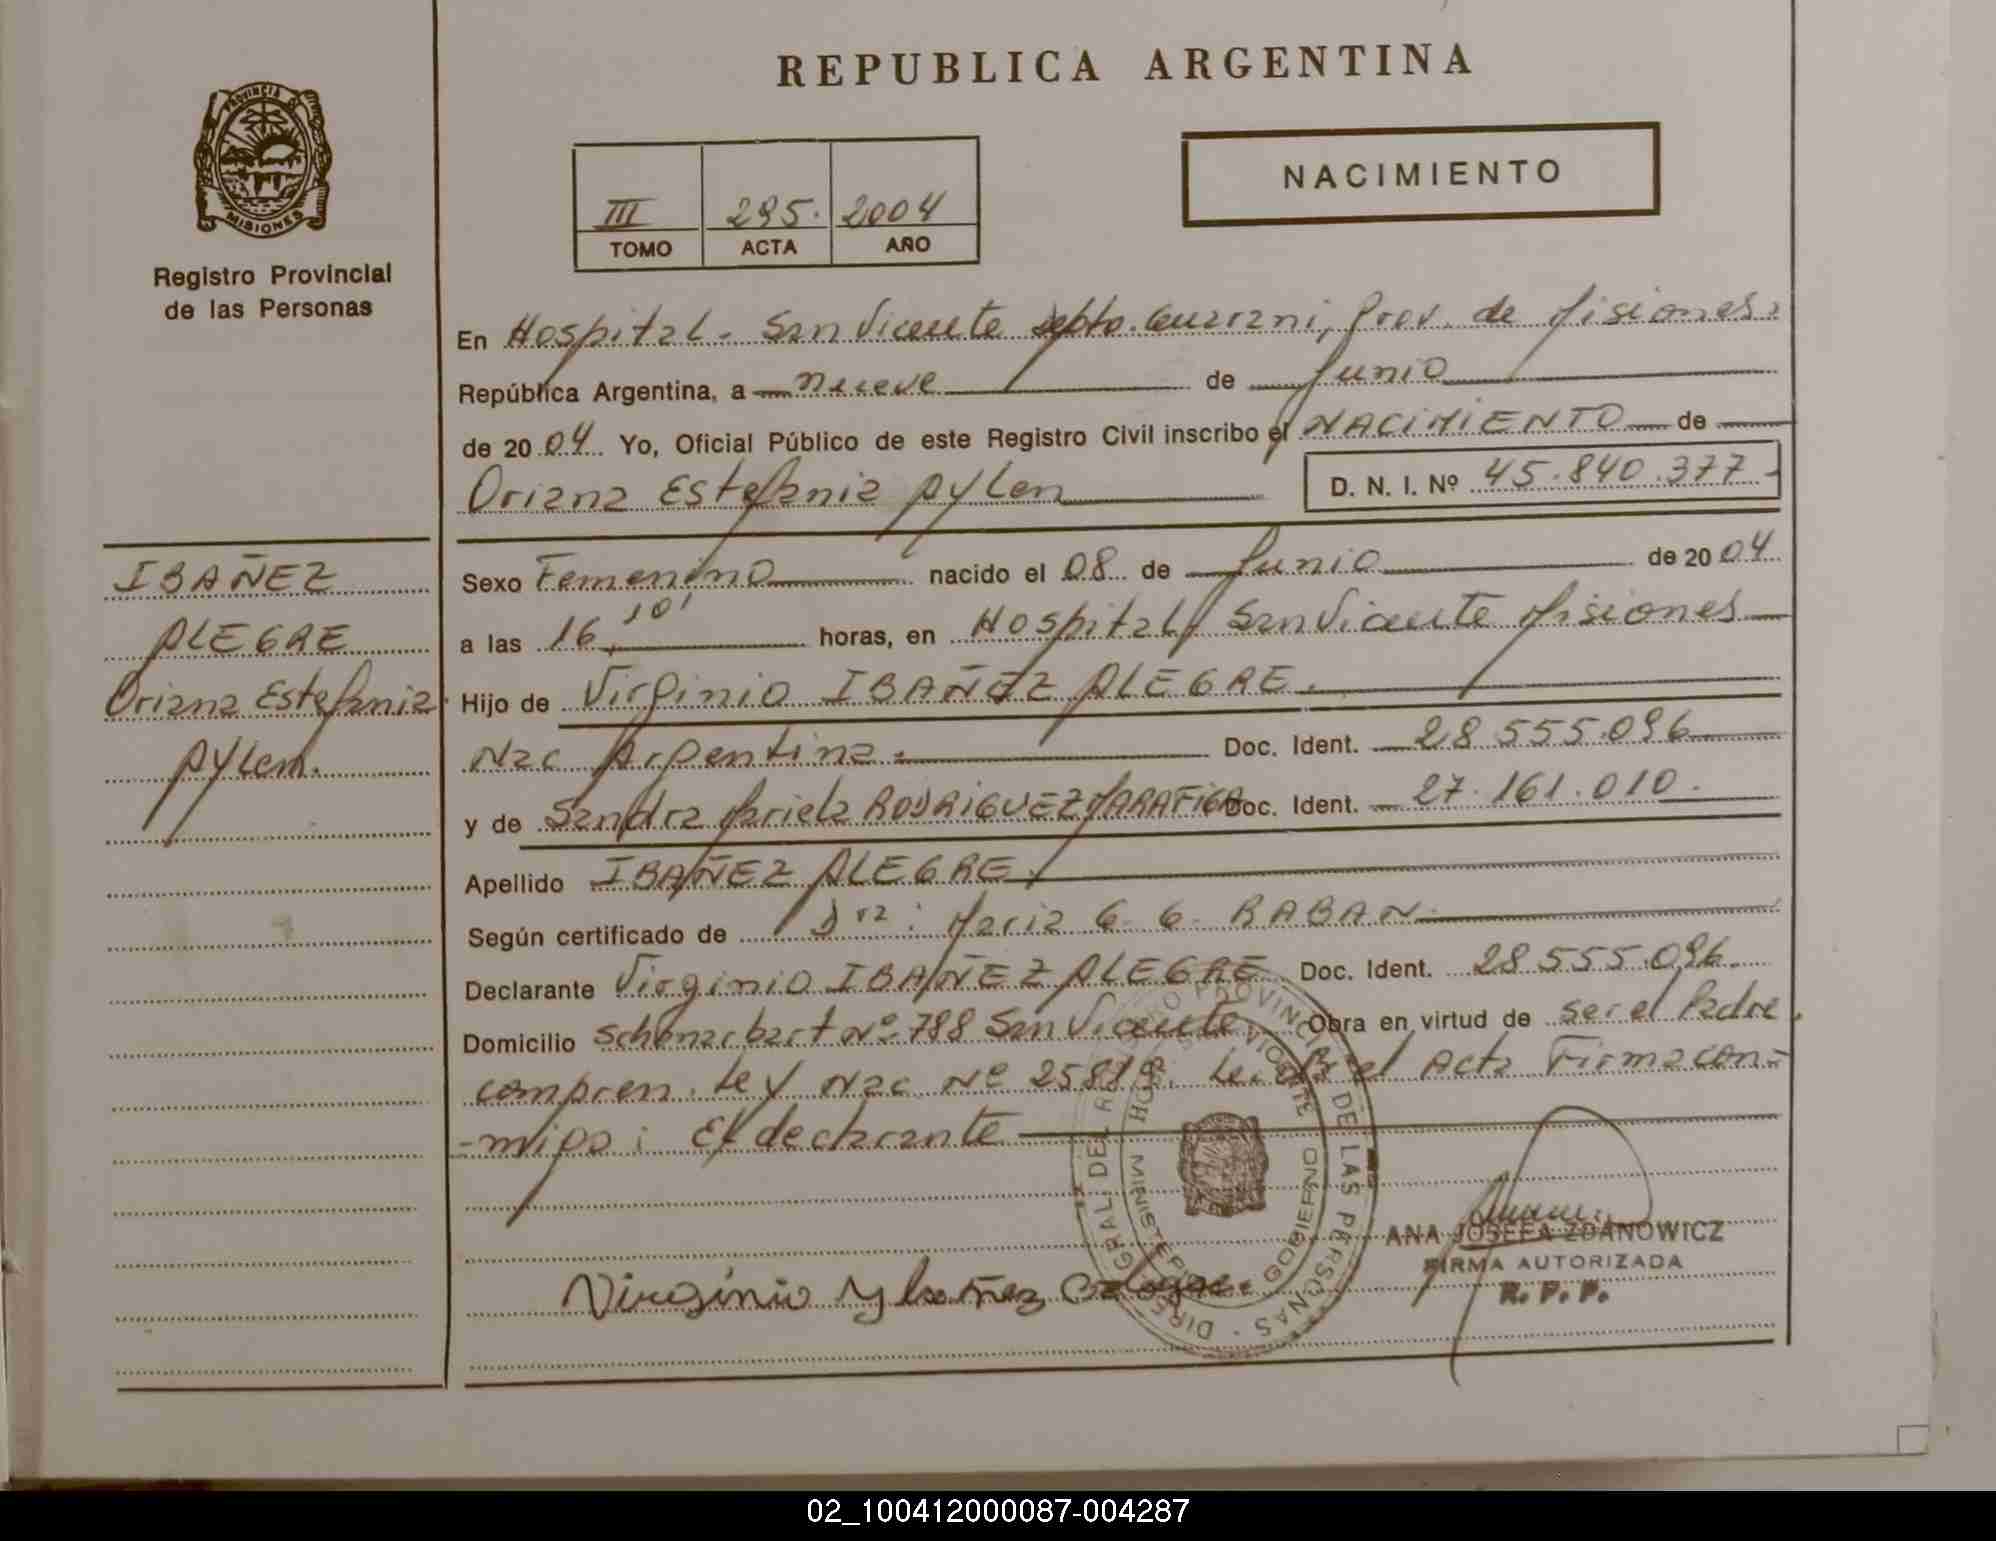 REPUBLICA ARGENTINA
PROVINCIA DE
MISIONES
Registro Provincial
de las Personas
NACIMIENTO
III 295. 2004
TOMO ACTA AÑO
En Hospital - San Vicente Dpto. Guarani, Prov. de Misiones.
República Argentina, a nueve de Junio
de 2004 Yo, Oficial Público de este Registro Civil inscribo el NACIMIENTO de
Oriana Estefania Aylen D. N. I. Nº 45.840.377
IBAÑEZ
ALEGRE
Oriana Estefania
Aylem.
Sexo Femenino nacido el 08 de Junio de 2004
a las 16,10' horas, en Hospital San Vicente Misiones
Hijo de Virginio IBAÑEZ ALEGRE.
Nac Argentina. Doc. Ident. 28.555.096
y de Sandra Mariela RODRIGUEZ Doc. Ident. 27.161.010.
Apellido IBAÑEZ ALEGRE
Según certificado de Dra: Maria G. G. RABAN
Declarante Virginio IBAÑEZ ALEGRE Doc. Ident. 28.555.096
Domicilio Nº 788 San Vicente Obra en virtud de ser el Padre
compren. Ley Nac. Nº el Acta Firma con-
-migo: El declarante
Virginio Ybañez
ANA JOSEFA ZDANOWICZ
FIRMA AUTORIZADA
R. P. P.
DIREC GRAL. DEL REGISTRO PROVINCIAL DE LAS PERSONAS
MINISTERIO GOBIERNO
02_100412000087-004287